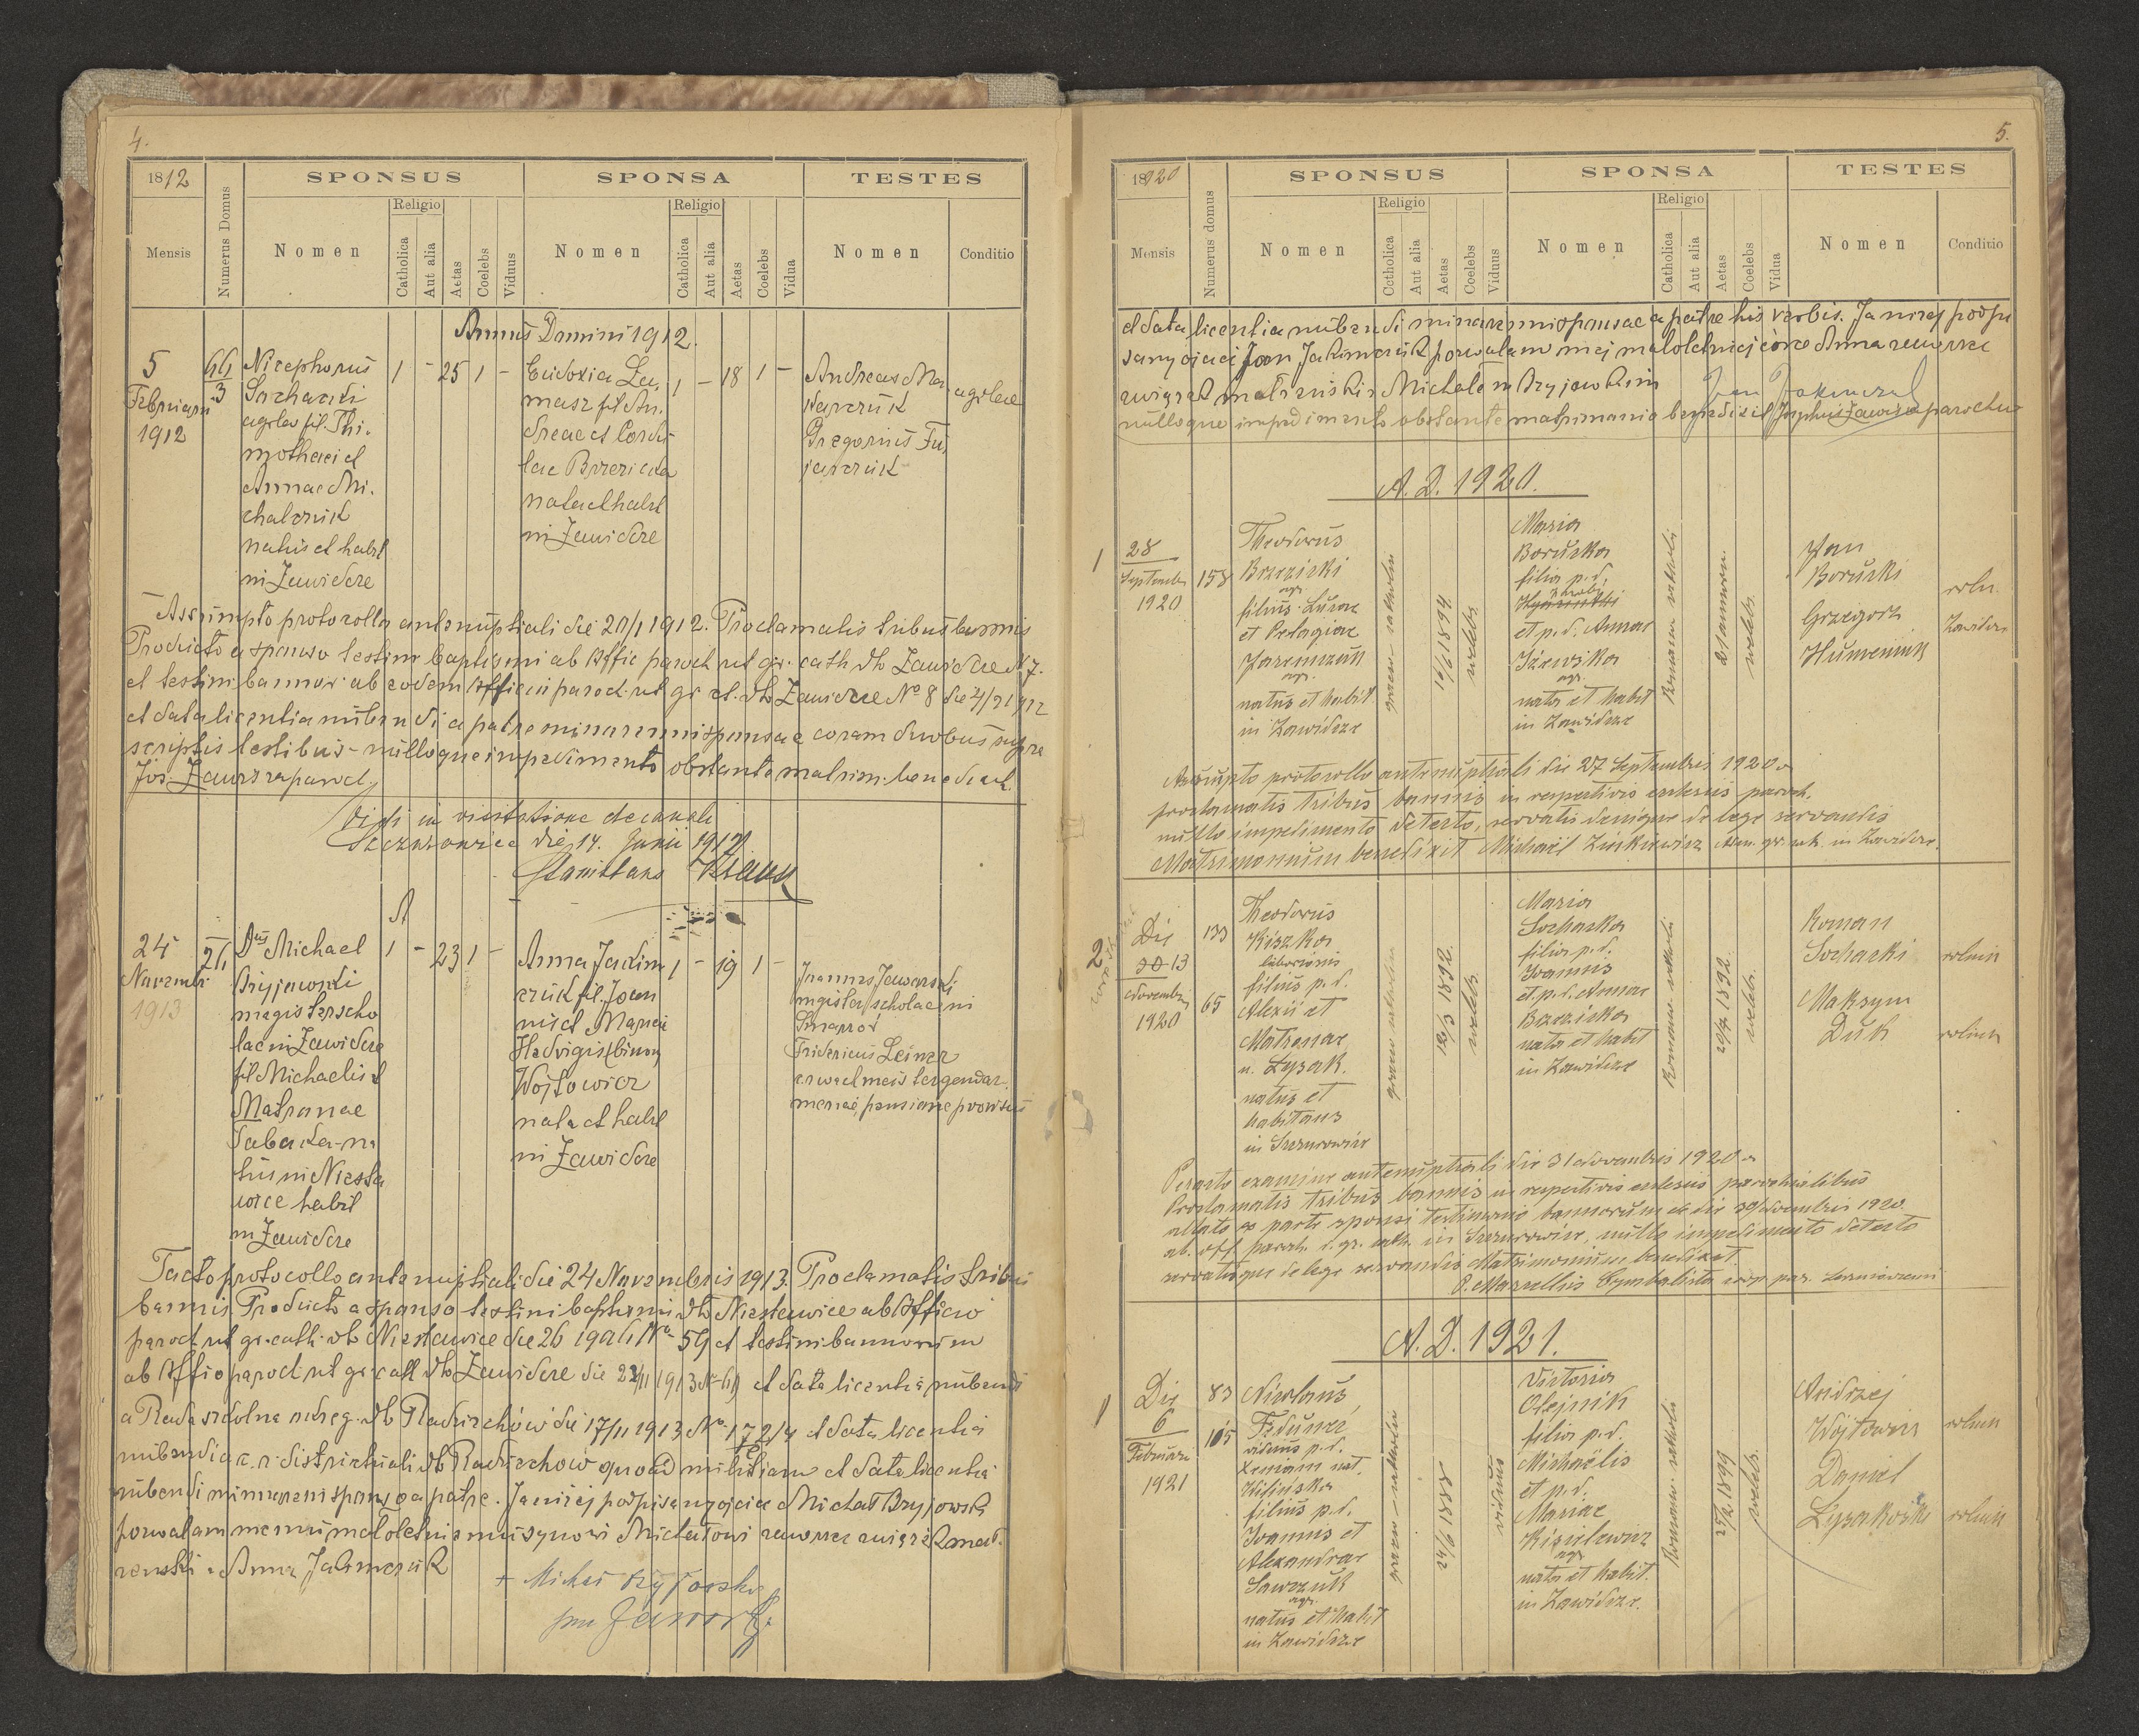 4.
1812
Numerus Domus
SPONSUS
SPONSA
TESTES
Religio
Religio
Mensis
Nomen
Catholica
Aut alia
Aetas
Coelebs
Viduus
Nomen
Catholica
Aut alia
Aetas
Coelebs
Vidua
Nomen
Conditio
Annus Domini 1912.
5
Februarii
1912
66
3
Nicephorus
Sochacki
agricola fil. Thi-
mothaei et
Annae Mi-
chalczuk
natus et habit
in Zawidcze
1 - 25 1 -
Eudoxia La-
masz fil. An-
dreae et Cordu-
lae Brzezicka
nata et habit
in Zawidcze
1 - 18 1 -
Andreas Ma-
Gregorius Fu-
agricolae
Assumpto protocollo antenuptiali die 20/1 1912. Proclamatis tribus bannis
Producto a sponso testim baptismi ab Offic paroch rit gr. cath dto Zawidcze N 7.
et testim. bannor. ab eodem Officii paroch. rit gr ct. dto Zawidcze No 8 die 4/2 1912
et data licentia nubendi a patre minorennis sponsae coram duobus supra
scriptis testibus - nulloque impedimento obstante matrim. benedixit.
Jos. Zawrza paroch
Vidi in visitatione decanali
Szczurowice die 14. Junii 1912
Stanislaus
24
Novembr
1913
26
Dus Michael
Bryjowski
magister scho
lae in Zawidcze
fil Michaelis et
Matronae
Sabada - na
tus in Niesta
wice habit
in Zawidcze
1 - 23 1 -
Anna Jakim
czuk fil. Joan
nis et Mariae
Hedvigis (binom
Wojtowicz
nata et habit
in Zawidcze
1 - 19 1 -
Joannes Jaworski
magister scholae in
Fridericus Leiner
pensione provisus
Facto protocollo antenuptiali die 24 Novembris 1913. Proclamatis tribus
bannis. Producto a sponso testim baptismi dto Niestawice ab Officio
paroch rit gr. cath. dto Niestawice die 26 No 59 et testim. bannorum
ab Offio paroch rit gr. cath dto Zawidcze die 22/11 1913 et data licentia nubendi
a Rada szkolna okreg. dto Radziechów die 17/11 1913 No 1721/4 et data licentia
nubendi a c. r. districtuali dto Radziechow quoad militiam et data licentia
nubendi minorenni sponso a patre. Ja niżej podpisany ojciec Michał Bryjowski
pozwalam memu małoletniemu synowi Michałowi zawrzec związek mał-
żenski z Anna Jakimczuk
+ Michał Bryjowski
5.
18920
Numerus domus
SPONSUS
SPONSA
TESTES
Religio
Religio
Mensis
Nomen
Cctholica
Aut alia
Aetas
Coelebs
Viduus
Nomen
Catholica
Aut alia
Aetas
Coelebs
Vidua
Nomen
Conditio
et data licentia nubendi minorenni sponsae a patre his verbis. Ja niżej podpi
sany ojciec Jan Jakimczuk pozwalam mej małoletniej córce Anna zawrzec
związek małżenski z Michałem Bryjowskim Jan Jakimczuk
nulloque impedimento obstante matrimonio benedixit Josephus Zawrza parochus
A. D. 1920.
1
28
Septembr
1920
158
Theodorus
Brzezicki
agr.
filius Lucae
et Pelagiae
agr.
natus et habit
in Zawidcze
graeco-catholica
10/6 1894
coelebs
Maria
Borucka
filia p. d.
et p. d. Annae
agr.
nata et habit
in Zawidcze
Romano catholi
21 annorum
coelebs
Jan
Borucki
Grzegorz
Humeniuk
roln.
Zawidcze
Assumpto protocollo antenuptiali die 27 Septembris 1920 a
proclamatis tribus bannis in respectivis eclesiis paroch.
nullo impedimento detecto, servatis denique de lege servandis
Matrimonium benedixit Michaël Zinkiewicz Adm. gr. cath. in Zawidcze.
2
Die
30 13
Novembr
1920
133
65
Theodorus
Kiszka
laborionis
filius p. d.
Alexii et
Matronae
n. Lysak.
natus et
habitans
in Szczurowice
graeco catholica
12/3 1892.
coelebs
Maria
Sochacka
filia p. d.
Ioannis
et p. d. Annae
Brzezicka
nata et habit
in Zawidcze
Romano catholi
29/7 1892
coelebs
Roman
Sochacki
Maksym
Duk
rolnik
rolnik
Peracto examine antenuptiali die 31 Novembris 1920 a
Proclamatis tribus bannis in respectivis eclesiis parochialibus
allato ex parte sponsi testimonio bannorum de die 30 Novembris 1920.
ab. off. paroch. r. gr. cath. in Szczurowice, nullo impedimento detecto
servatisque de lege servandis Matrimonium benedixit.
P. Marcellius Cymbalista coop par.
A. D. 1921.
1
Die
6
Februarii
1921
83
105
Nicolaus
viduus p. d.
filius p. d.
Ioannis et
Alexandrae
Sawczuk
agr.
natus et habit
in Zawidcze
graeco-catholica
24/9 1888
viduus
Victoria
Olejnik
filia p. d.
Michaëlis
et p. d.
Mariae
Kisielewicz
agr.
nata et habit.
in Zawidcze.
Romano catholi
25/12 1899
coelebs.
Andrzej
Wojtowicz
Daniel
Lysakoski
rolnik
rolnik